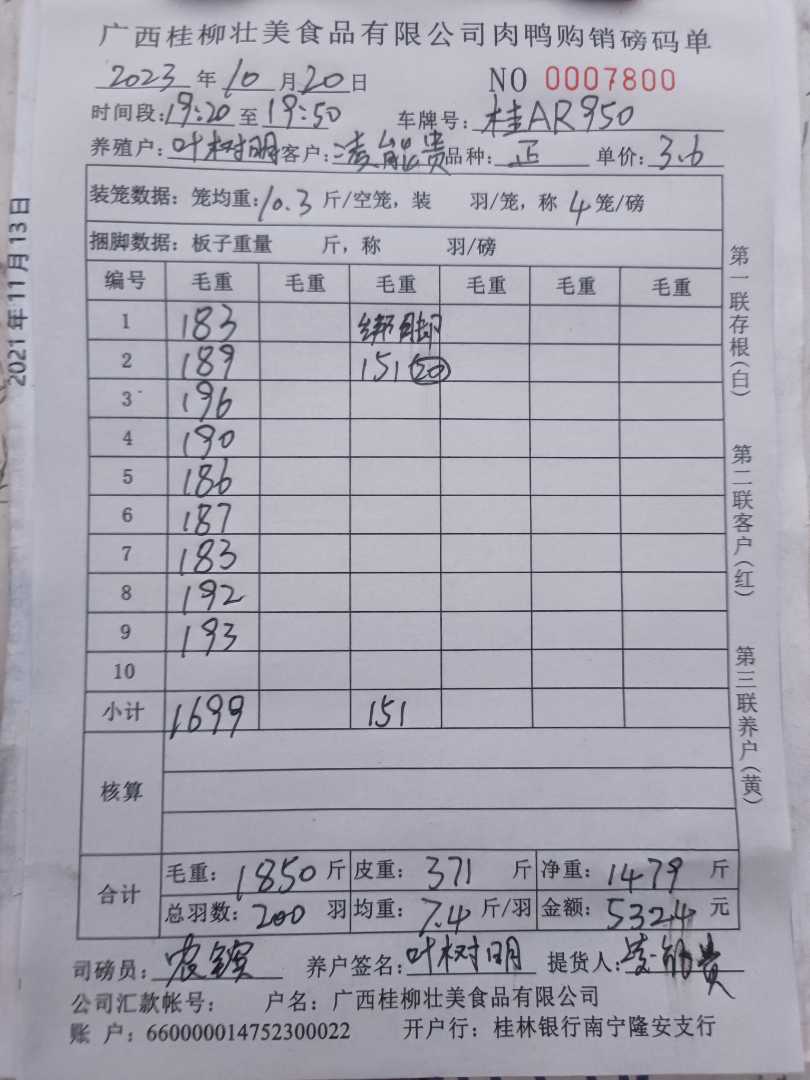 广西桂柳壮美食品有限公司肉鸭购销磅码单
2023年10月20日 NO 0007800
时间段:19:20至19:50 车牌号:桂AR950
养殖户:叶树明 客户:凌能贵 品种:正 单价:3.6
装笼数据:笼均重:10.3斤/空笼,装 羽/笼,称4笼/磅
捆脚数据:板子重量 斤,称 羽/磅
编号 毛重 毛重 毛重 毛重 毛重 毛重
1 183 绑脚
2 189 151 20
3 196
4 190
5 186
6 187
7 183
8 192
9 193
10
小计 1699 151
核算
合计 毛重:1850斤 皮重:371斤 净重:1479斤
总羽数:200羽 均重:7.4斤/羽 金额:5324元
司磅员: 养户签名:叶树明 提货人:
公司汇款帐号: 户名:广西桂柳壮美食品有限公司
账 户:660000014752300022 开户行:桂林银行南宁隆安支行
第一联存根(白)
第二联客户(红)
第三联养户(黄)
2021年11月13日